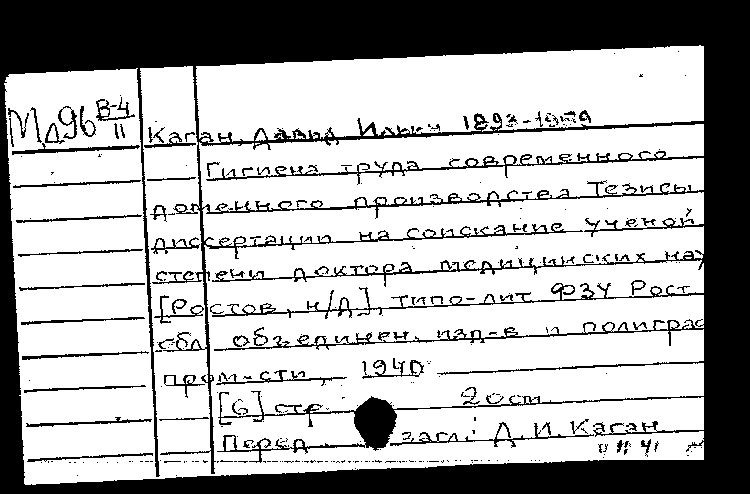 Мд96 В-4/II
Каган, Давид Ильич 1893-1959
Гигиена труда современного
доменного производства Тезисы
диссертации на соискание ученой
степени доктора медицинских нау
[Ростов, н/Д], типо-лит ФЗУ Рост
обл объединен. изд-в и полиграф
пром-сти, 1940
[6] стр 20 см
Перед загл.: Д. И. Каган